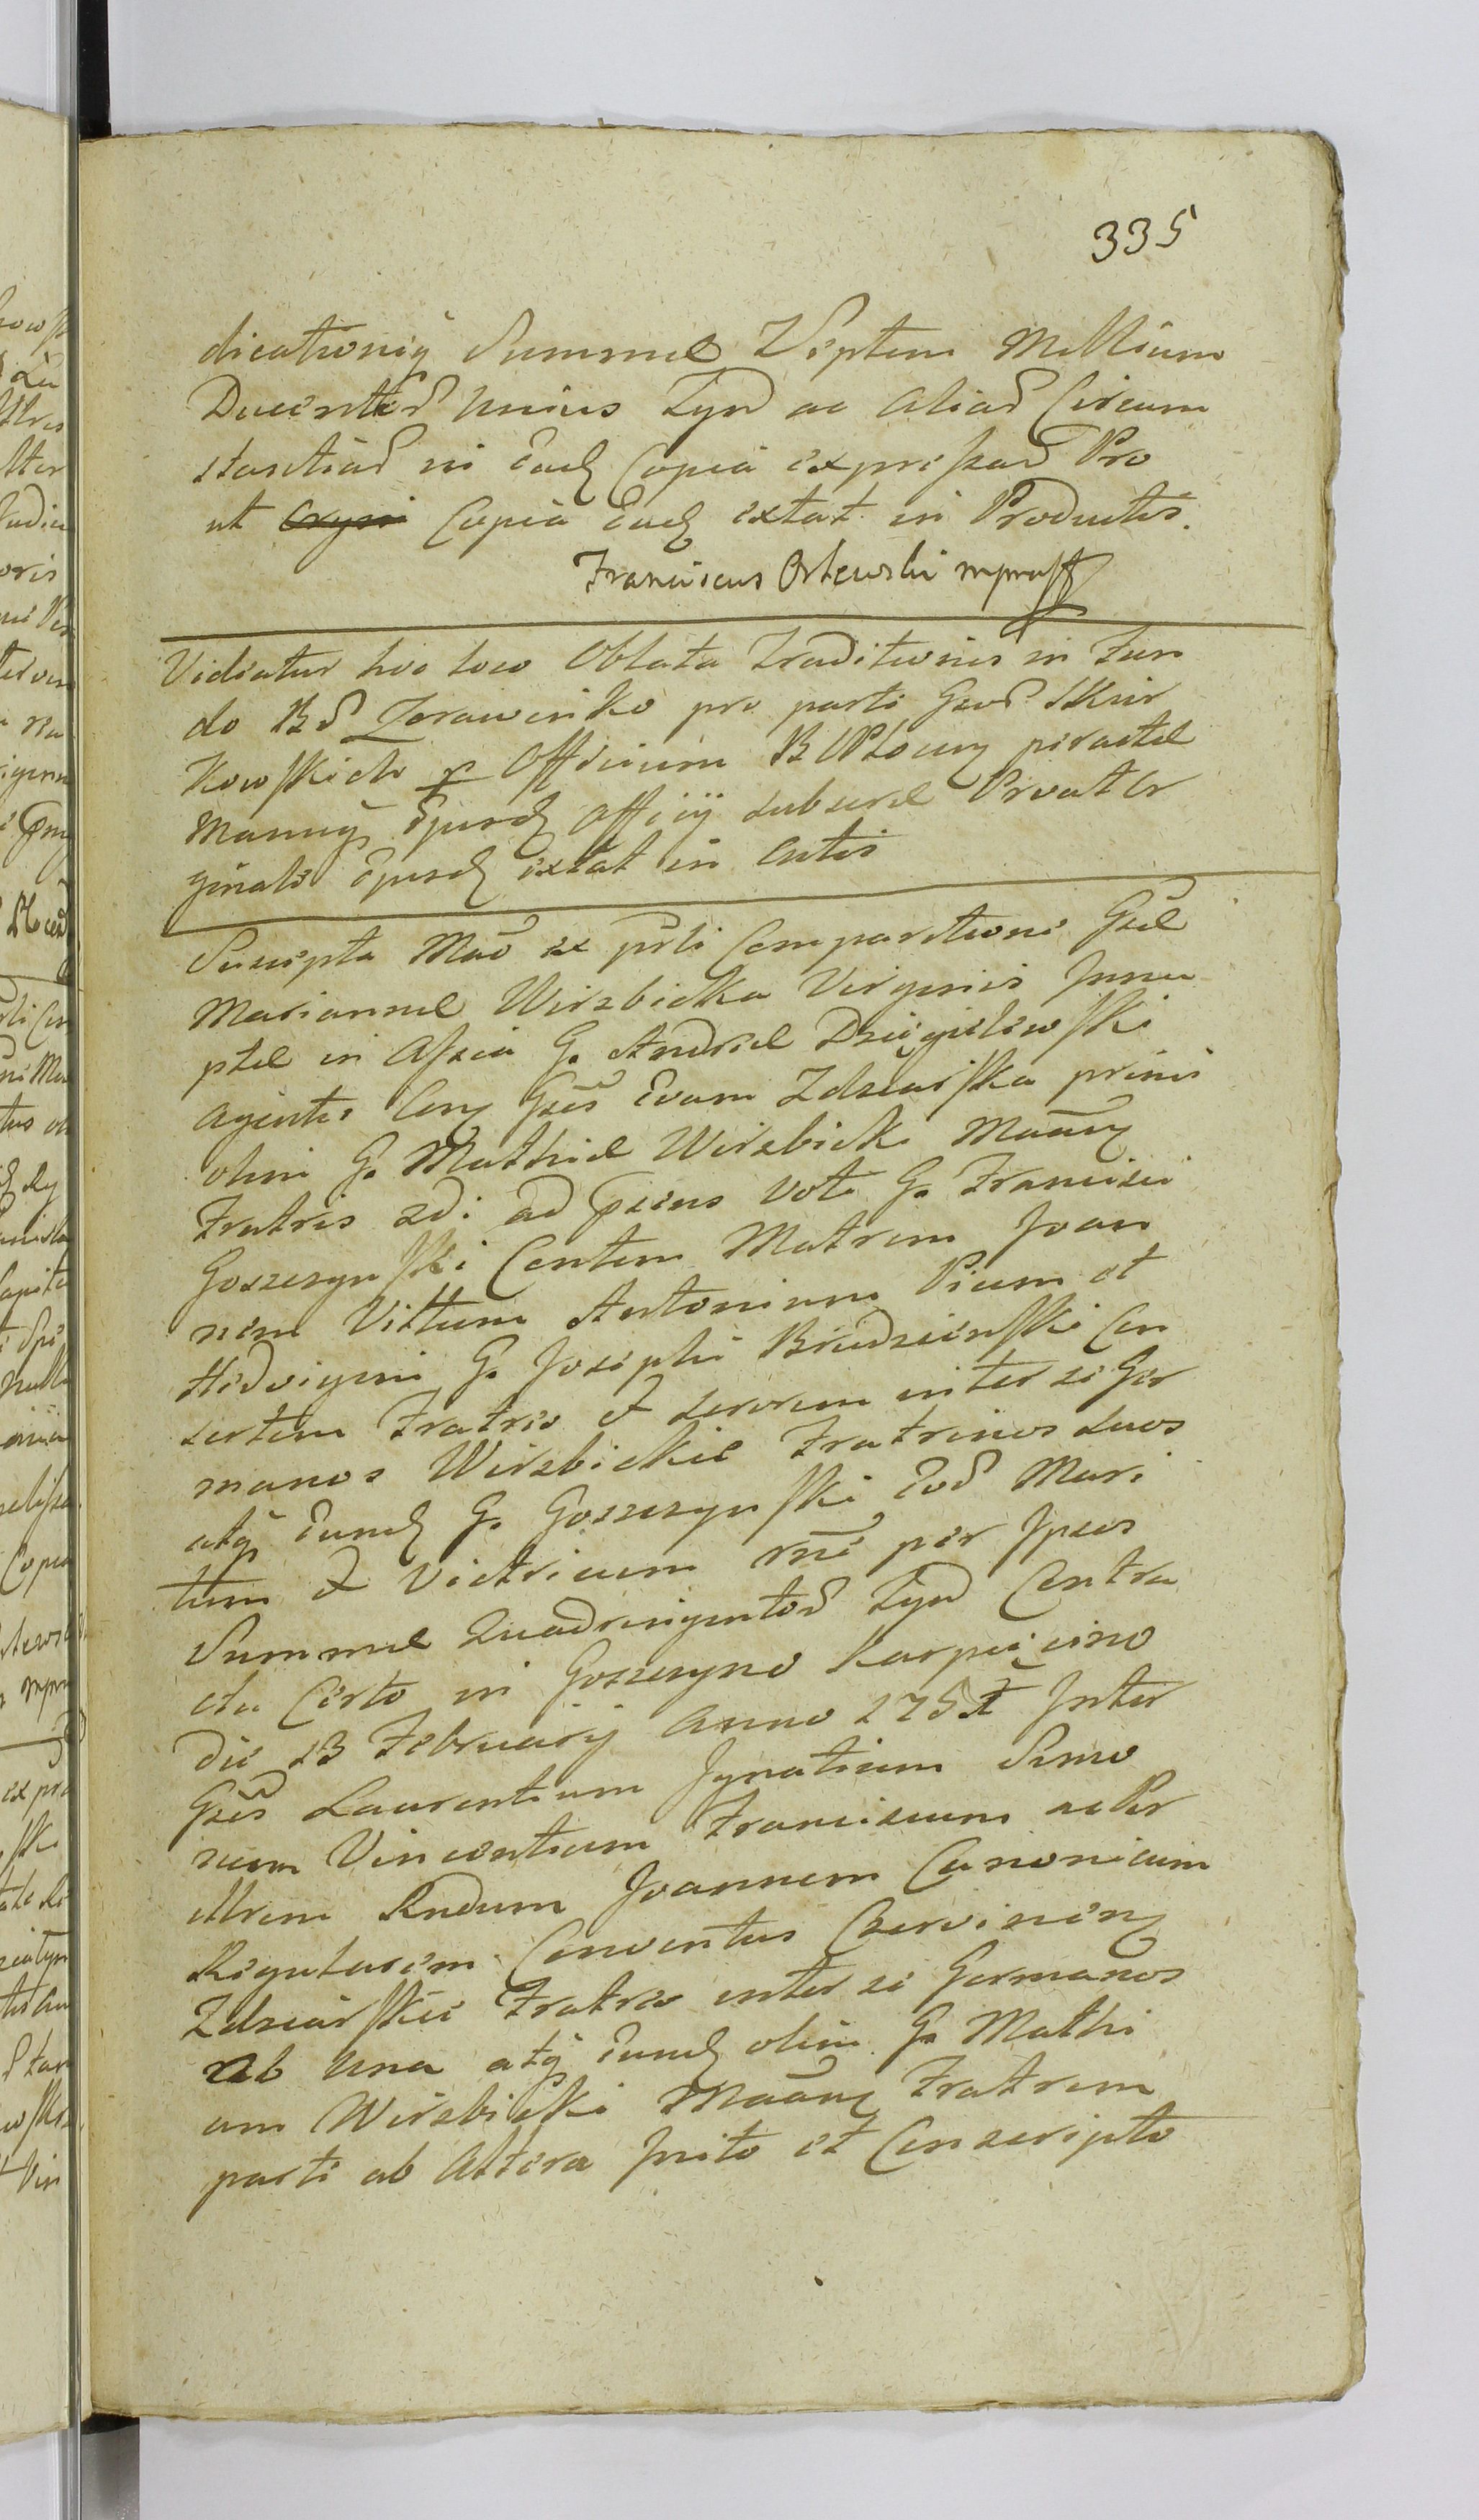 335
dicationisq Summæ Septem Millium
Ducentor Unius Tynf ac aliar Circum
stantiar in Eadq Copia expressar Pro
ut Orygi Copia Eadq extat in Productis.
Franciscus Ortewski mpraff
Videatur hoc loco Oblata Traditionis in Fun
do BB Zerawinko pro parte Gsor Skur
kowskich p Officium peractæ
Manuq Ejusdq Officij subscræ Prout Or
ginale Ejusdq extat in Actis
Suscepta Mao ex prti Comparitione Gsæ
Mariannæ Wirzbicka Virginis Innu
ptæ in Assia G. Andreæ Dzięgielewski
agentis Conq Gses Evam Zdziarska primi
olim G. Mathiæ Wirzbicki Maanq
Fratris 2di ad psens Voti G. Francisci
Goszczynski Contem Matrem Joan
nem Vittum Antonium Pium et
Hedvigem G. Josephi Brudzienski Con
sortem Fratres & sororem inter se Ger
manos Wirzbickie Fratrinos suos
atq Eundq G. Goszczynski Eor Mari
tum & Victricum rne per Ipsos
Summæ Quadringentor Tynf Contra
ctu Certo in Goszczyno Karpięcino
die 13 February Anno 175 Inter
Gses Laurentium Ignatium Simo
nem Vincentium Franciscum ac Per
illrem Rndum Joannem Canonicum
Regularem Conventus Czervinenq
Zdziarskie Fratres inter se Germanos
ab Una atq Eundq olim G. Mathi
am Wirzbicki Maanq Fratrem
parte ab Altera Inito et Conscripto